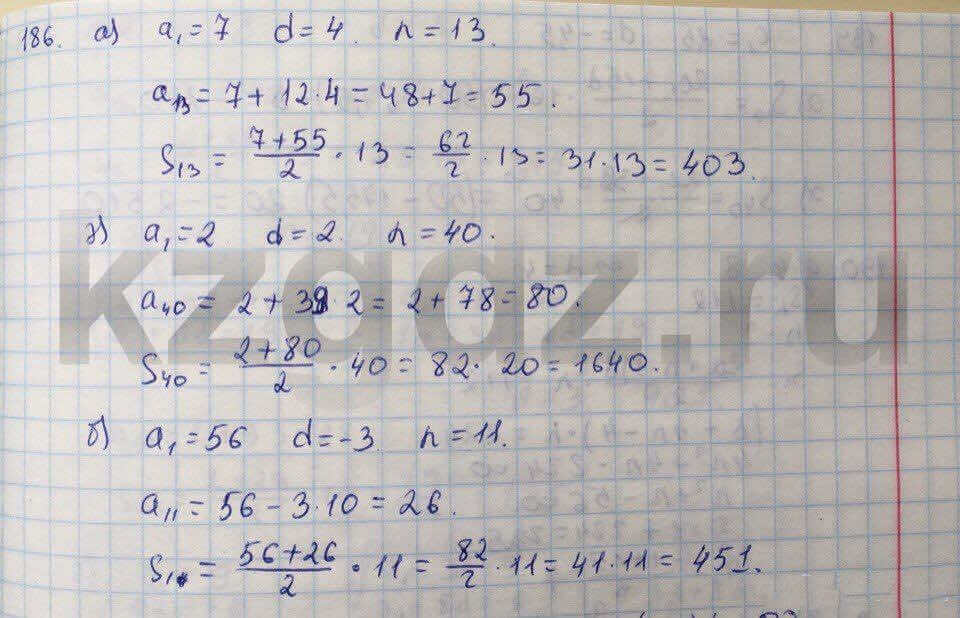 186. а) a₁ = 7 d = 4. n = 13.
a₁₃ = 7 + 12·4 = 48 + 7 = 55.
S₁₃ = (7+55)/2 · 13 = 62/2 · 13 = 31·13 = 403.
г) a₁ = 2 d = 2. n = 40.
a₄₀ = 2 + 39·2 = 2 + 78 = 80.
S₄₀ = (2+80)/2 · 40 = 82 · 20 = 1640.
б) a₁ = 56 d = -3 n = 11.
a₁₁ = 56 - 3·10 = 26.
S₁₁ = (56+26)/2 · 11 = 82/2 · 11 = 41·11 = 451.
kzgdz.ru